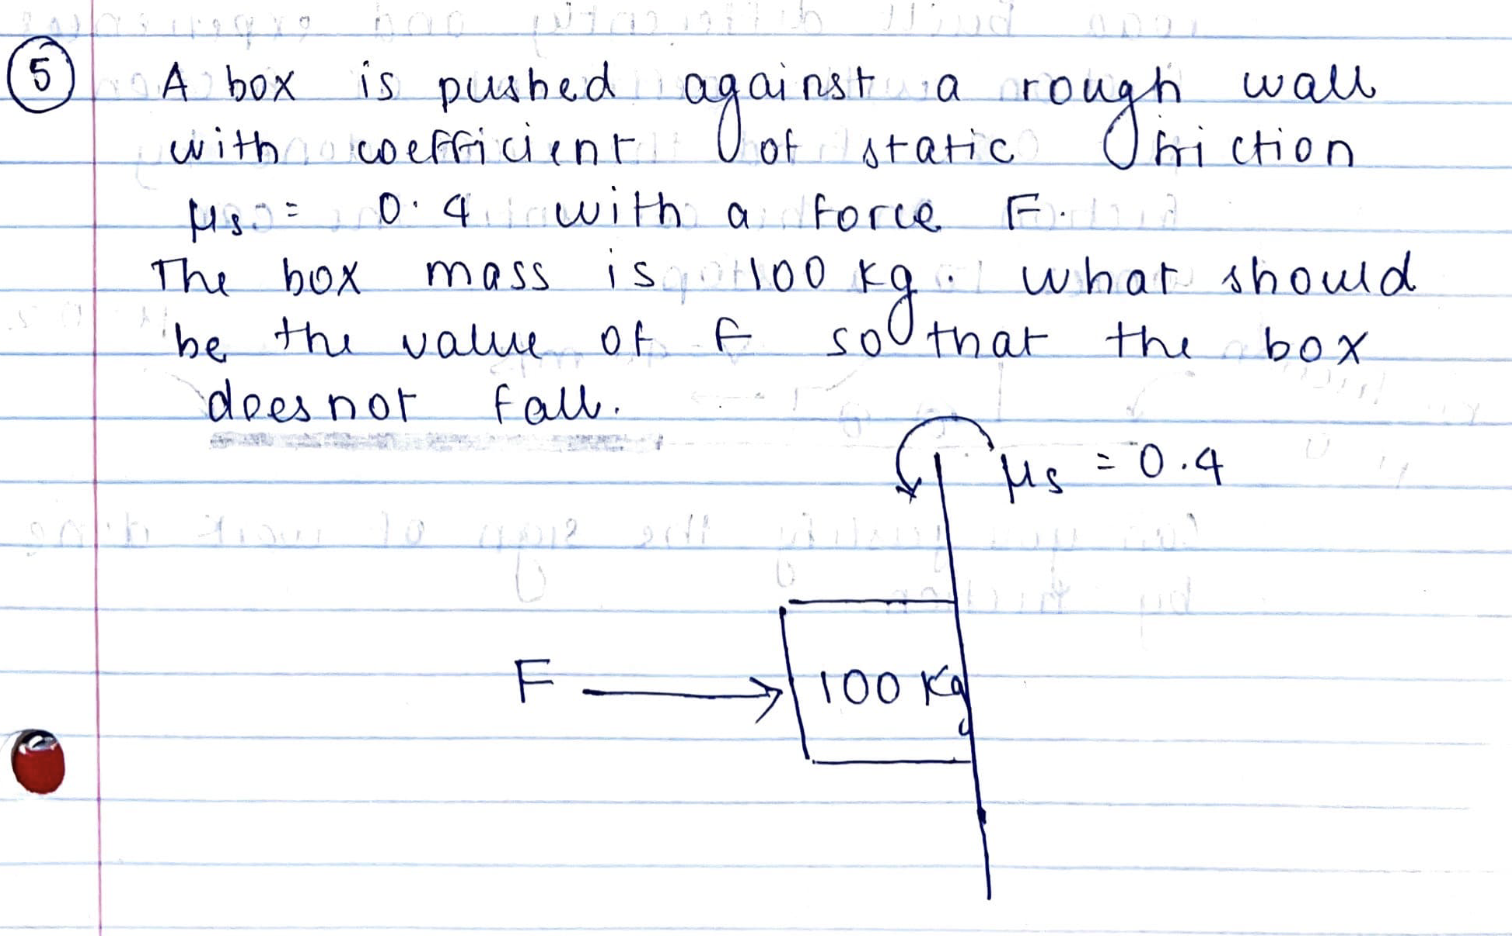 5 A box is pushed against a rough wall
with coefficient of static friction
μs = 0.4 with a force F.
The box mass is 100 kg. What should
be the value of F so that the box
does not fall.
μs = 0.4
F
100 Kg